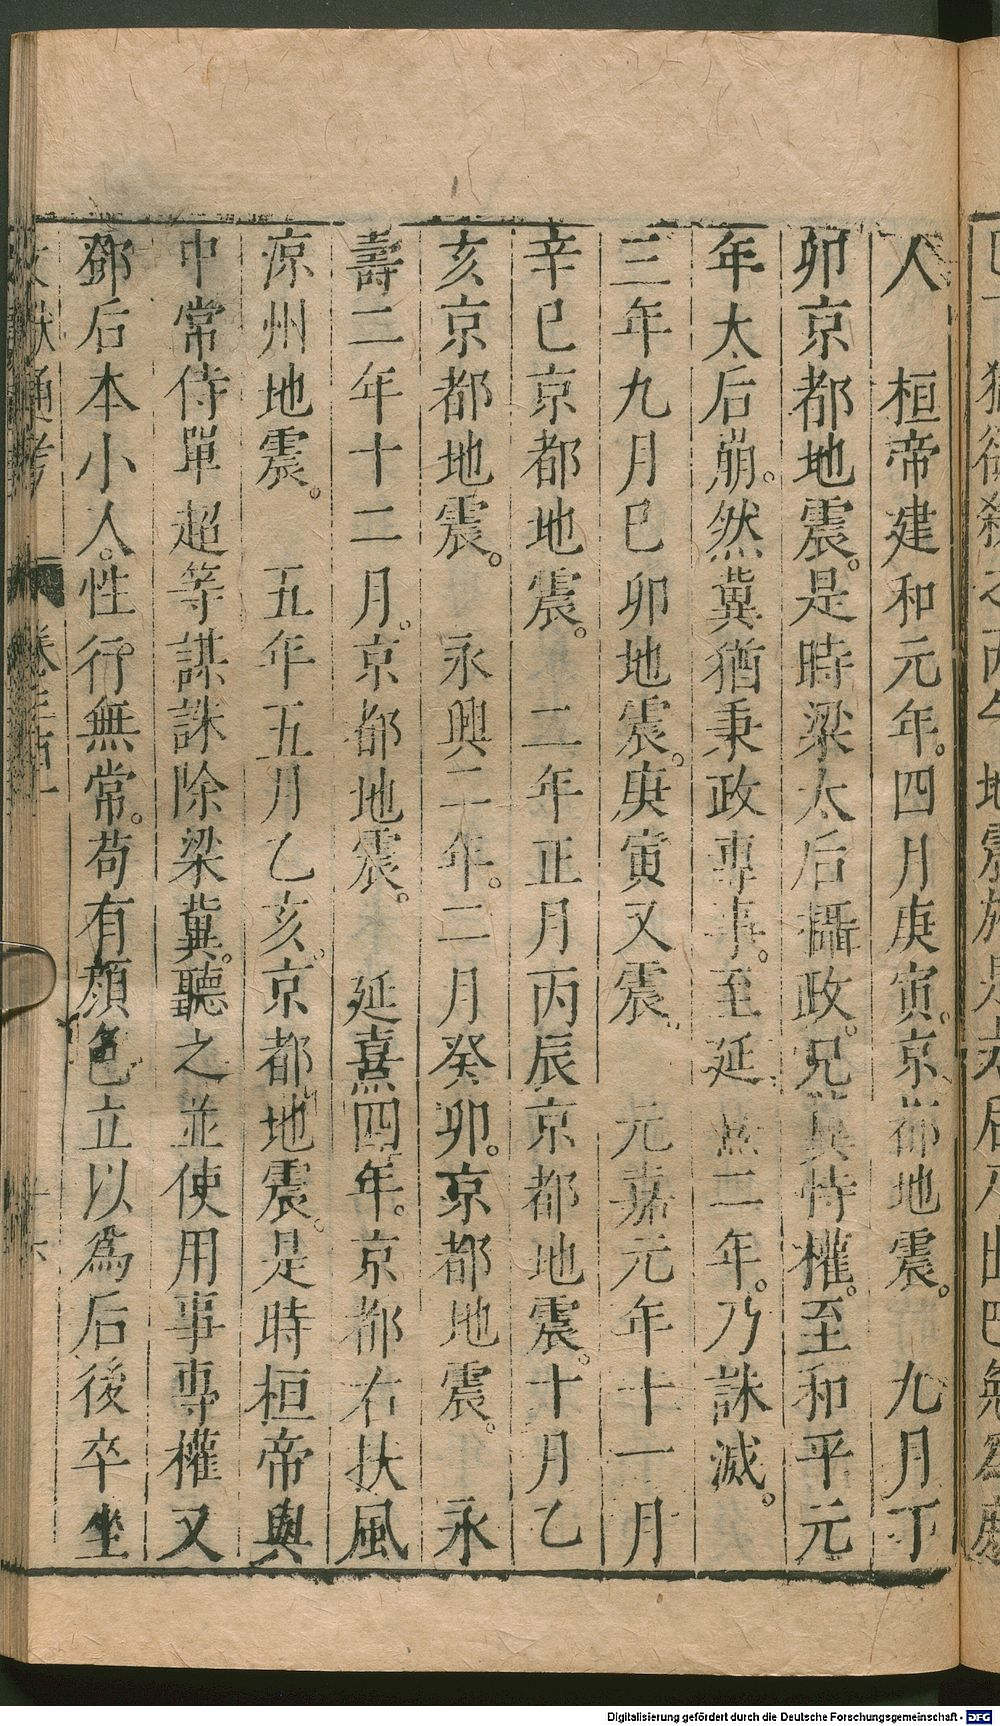 人　桓帝建和元年。四月庚寅。京都地震。　九月丁
卯京都地震。是時梁太后攝政。兄冀恃權。至和平元
年太后崩。然冀猶秉政專事。至延熹二年。乃誅滅。
三年九月巳卯地震。庚寅又震。　元嘉元年十一月
辛巳京都地震。二年正月丙辰京都地震。十月乙
亥京都地震。　永興二年。二月癸卯。京都地震。　永
壽二年十二月。京都地震。　延熹四年。京都右扶風
涼州地震。　五年五月乙亥。京都地震。是時桓帝與
中常侍單超等謀誅除梁冀。聽之並使用事專權又
鄧后本小人。性行無常。苟有顏色立以爲后後卒坐
文獻通考
Digitalisierung gefördert durch die Deutsche Forschungsgemeinschaft - DFG